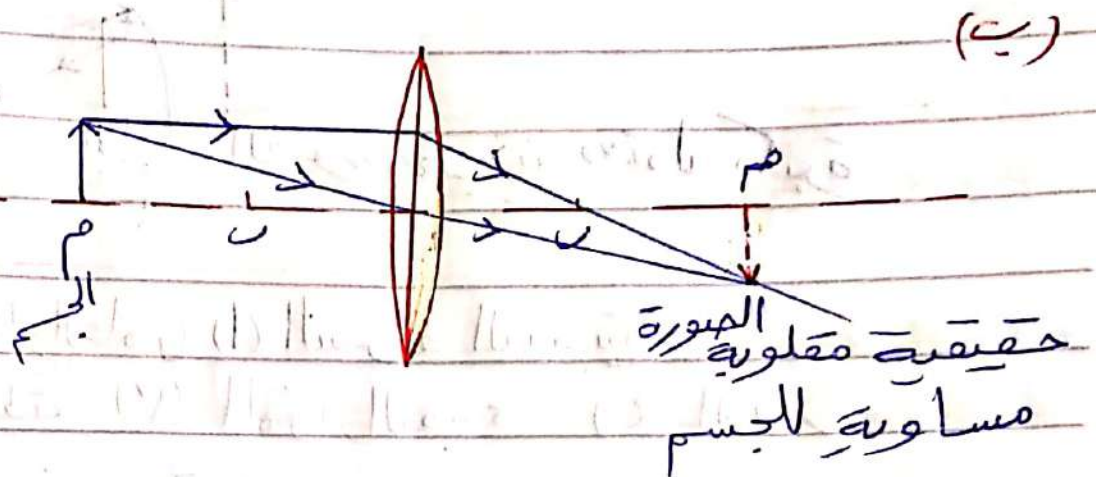 (ب)
م
ب
ب
م
الجسم
الصورة
حقيقية مقلوبة
مساوية للجسم